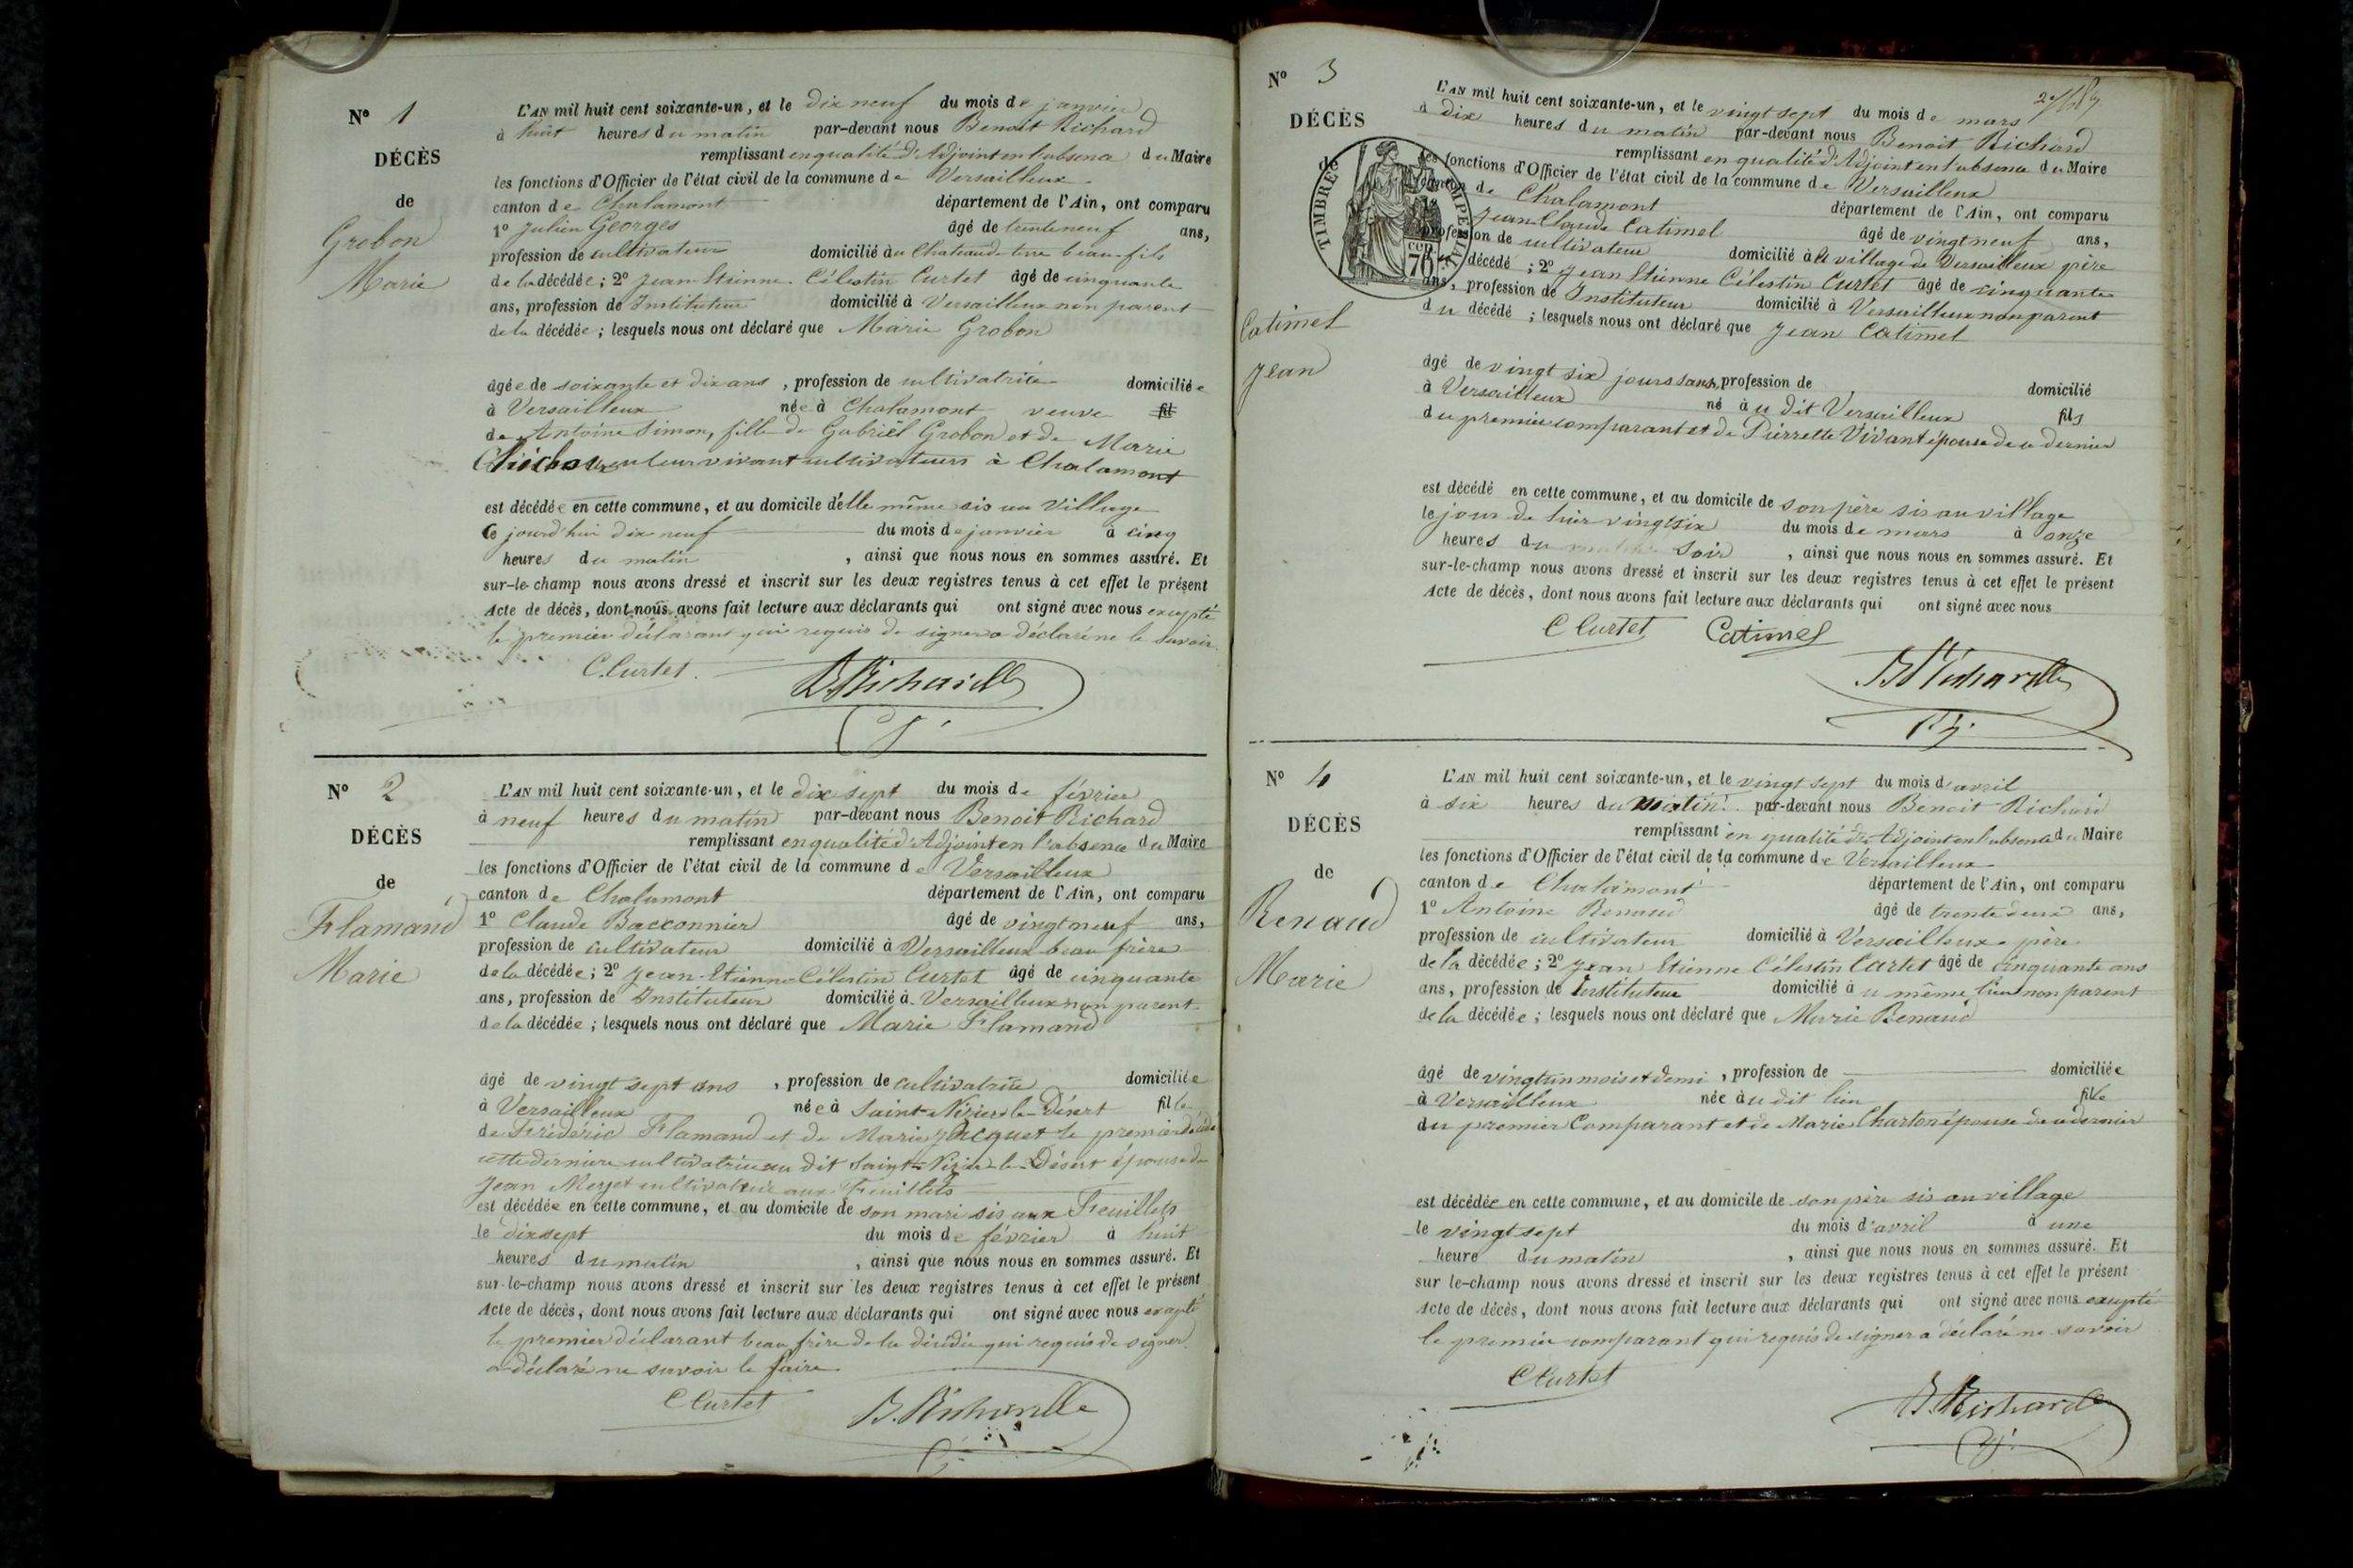 N° 1
DÉCÈS
de
Grobon
Marie
L'AN mil huit cent soixante-un, et le dix neuf du mois de janvier
à huit heures du matin par-devant nous Benoit Richard
remplissant en qualité d'Adjoint en l'absence du Maire
les fonctions d'Officier de l'état civil de la commune de Versailleux
canton de Chalamont département de l'Ain, ont comparu
1° Julien Georges âgé de trente neuf ans,
profession de cultivateur domicilié au Chateau de terre beau-fils
de la décédée ; 2° Jean Etienne Célestin Curtet âgé de cinquante
ans, profession de Instituteur domicilié à Versailleux non parent
de la décédée ; lesquels nous ont déclaré que Marie Grobon
âgée de soixante et dix ans, profession de cultivatrice domiciliée
à Versailleux née à Chalamont veuve fil
de Antoine Simon, fille de Gabriel Grobon et de Marie
en leur vivant cultivateurs à Chalamont
est décédée en cette commune, et au domicile d'elle même sis au village
ce jourd'hui dix neuf du mois de janvier à cinq
heures du matin, ainsi que nous nous en sommes assuré. Et
sur-le-champ nous avons dressé et inscrit sur les deux registres tenus à cet effet le présent
Acte de décès, dont nous avons fait lecture aux déclarants qui ont signé avec nous excepté
le premier déclarant qui requis de signer a déclaré ne le savoir
C. Curtet B. Richard
N° 2
DÉCÈS
de
Flamand
Marie
L'AN mil huit cent soixante-un, et le dix sept du mois de février
à neuf heures du matin par-devant nous Benoit Richard
remplissant en qualité d'Adjoint en l'absence du Maire
les fonctions d'Officier de l'état civil de la commune de Versailleux
canton de Chalamont département de l'Ain, ont comparu
1° Claude Bacconnier âgé de vingt neuf ans,
profession de cultivateur domicilié à Versailleux beau frère
de la décédée ; 2° Jean-Etienne Célestin Curtet âgé de cinquante
ans, profession de Instituteur domicilié à Versailleux non parent
de la décédée ; lesquels nous ont déclaré que Marie Flamand
âgé de vingt sept ans, profession de cultivatrice domiciliée
à Versailleux née à Saint-Nizier-le-Désert fille
de Frédéric Flamand et de Marie Jacquet le premier décédé
cette dernière cultivatrice au dit Saint-Nizier-le-Désert épouse de
Jean Merjet cultivateur aux Feuillets
est décédée en cette commune, et au domicile de son mari sis aux Feuillets
le dix sept du mois de février à huit
heures du matin, ainsi que nous nous en sommes assuré. Et
sur-le-champ nous avons dressé et inscrit sur les deux registres tenus à cet effet le présent
Acte de décès, dont nous avons fait lecture aux déclarants qui ont signé avec nous excepté
le premier déclarant beau frère de la décédée qui requis de signer
a déclaré ne savoir le faire
C Curtet B. Richard
N° 3
DÉCÈS
de
Catimel
Jean
TIMBRE IMPERIAL
70
L'AN mil huit cent soixante-un, et le vingt sept du mois de mars
à dix heures du matin par-devant nous Benoit Richard
remplissant en qualité d'Adjoint en l'absence du Maire
les fonctions d'Officier de l'état civil de la commune de Versailleux
canton de Chalamont département de l'Ain, ont comparu
Jean-Claude Catimel âgé de vingt neuf ans,
profession de cultivateur domicilié à le village de Versailleux père
décédé ; 2° Jean Etienne Célestin Curtet âgé de cinquante
ans, profession de Instituteur domicilié à Versailleux non parent
du décédé ; lesquels nous ont déclaré que Jean Catimel
âgé de vingt six jours sans, profession de domicilié
à Versailleux né à u dit Versailleux fils
du premier comparant et de Pierrette Vivant épouse de ce dernier
est décédé en cette commune, et au domicile de son père sis au village
le jour de hier vingt six du mois de mars à onze
heures du soir, ainsi que nous nous en sommes assuré. Et
sur-le-champ nous avons dressé et inscrit sur les deux registres tenus à cet effet le présent
Acte de décès, dont nous avons fait lecture aux déclarants qui ont signé avec nous
C Curtet Catimel
B Richard
N° 4
DÉCÈS
de
Renaud
Marie
L'AN mil huit cent soixante-un, et le vingt sept du mois d'avril
à six heures du matin par-devant nous Benoit Richard
remplissant en qualité d'Adjoint en l'absence du Maire
les fonctions d'Officier de l'état civil de la commune de Versailleux
canton de Chalamont département de l'Ain, ont comparu
1° Antoine Renaud âgé de trente deux ans,
profession de cultivateur domicilié à Versailleux père
de la décédée ; 2° Jean Etienne Célestin Curtet âgé de cinquante ans
ans, profession de Instituteur domicilié à u même lieu non parent
de la décédée ; lesquels nous ont déclaré que Marie Renaud
âgé de vingt un mois et demi, profession de domiciliée
à Versailleux née à u dit lieu fille
du premier Comparant et de Marie Charton épouse de ce dernier
est décédée en cette commune, et au domicile de son père sis au village
le vingt sept du mois d'avril à une
heure du matin, ainsi que nous nous en sommes assuré. Et
sur le-champ nous avons dressé et inscrit sur les deux registres tenus à cet effet le présent
Acte de décès, dont nous avons fait lecture aux déclarants qui ont signé avec nous excepté
le premier comparant qui requis de signer a déclaré ne savoir
C Curtet
B. Richard